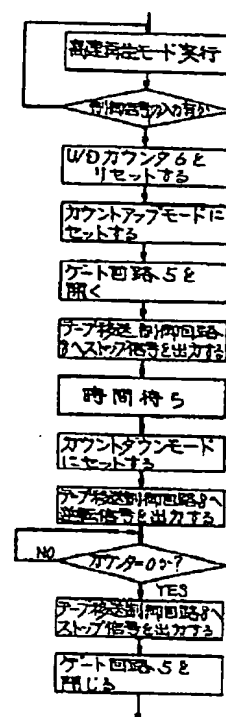 高速再生モード実行
制御信号の入力有か
WDカウンタ6を
リセットする
カウントアップモードに
セットする
ゲート回路5を
開く
テープ移送制御回路
8へストップ信号を出力する
時間待ち
カウントダウンモード
にセットする
テープ移送制御回路8へ
逆転信号を出力する
カウンタ=0か?
NO
YES
テープ移送制御回路8へ
ストップ信号を出力する
ゲート回路5を
閉じる